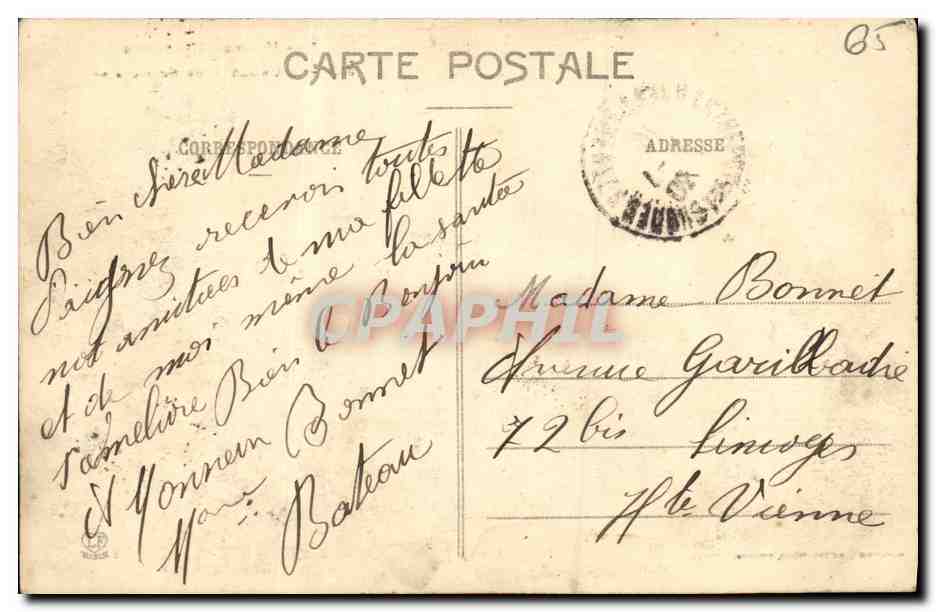 65
CARTE POSTALE
CORRESPONDANCE
ADRESSE
Bien chère Madame
Daignez recevoir toutes
not amitiees de ma fillette
et de moi même la santée
s'amelière Bien le Bonjour
A Monsieur Bonnet
Mme Bateau
Madame Bonnet
Avenue Garilbadie
72 bis Limoges
Hte Vienne
CPAPHIL